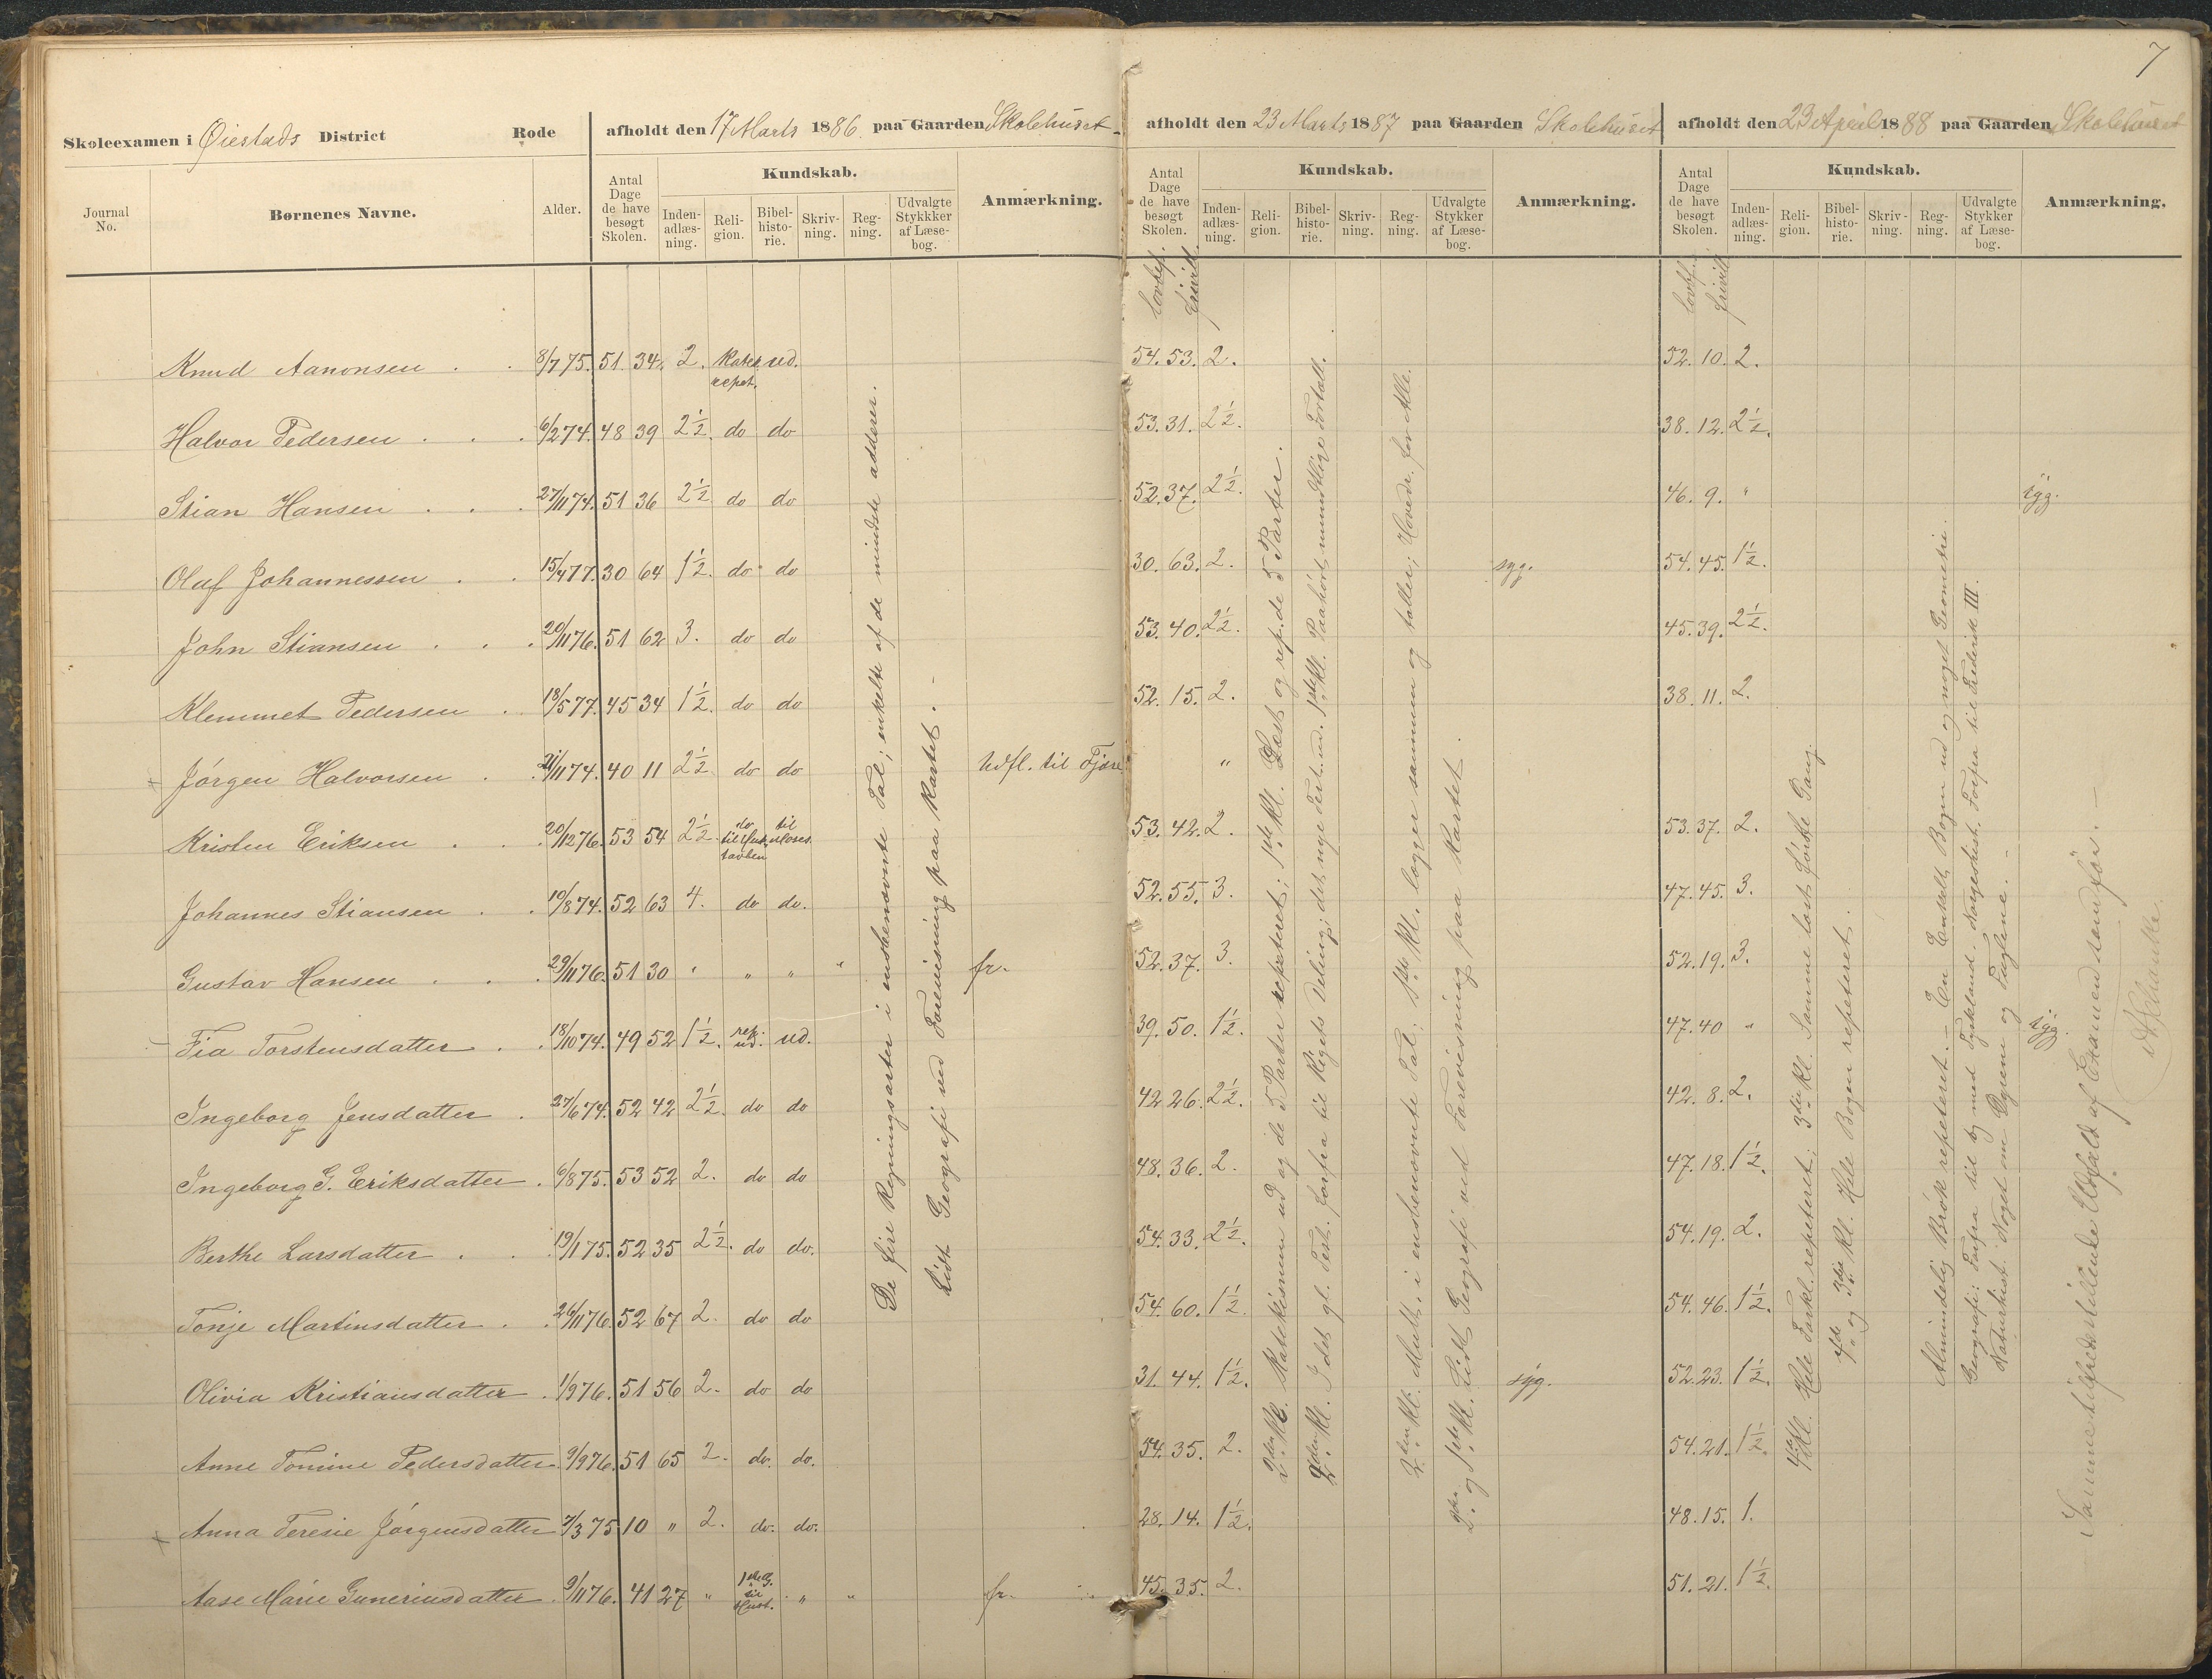 7
Skoleexamen i Øiestads District Rode
afholdt den 17 Marts 1886. paa Gaarden Skolehuset
afholdt den 23 Marts 1887 paa Gaarden Skolehuset
afholdt den 23 April 1888 paa Gaarden Skolehuset
Journal No. Børnenes Navne. Alder. Antal Dage de have besøgt Skolen. Kundskab. Inden-adlæs-ning. Reli-gion. Bibel-histo-rie. Skriv-ning. Reg-ning. Udvalgte Stykkker af Læse-bog. Anmærkning.
Antal Dage de have besøgt Skolen. Kundskab. Inden-adlæs-ning. Reli-gion. Bibel-histo-rie. Skriv-ning. Reg-ning. Udvalgte Stykker af Læse-bog. Anmærkning.
Antal Dage de have besøgt Skolen. Kundskab. Inden-adlæs-ning. Reli-gion. Bibel-histo-rie. Skriv-ning. Reg-ning. Udvalgte Stykker af Læse-bog. Anmærkning.
lovbef. frivill. lovbef. frivill.
Knud Aanonsen . . 8/7 75. 51 34 2. Katek. repet. ud. 54. 53. 2. 52. 10. 2.
Halvor Pedersen . . . 6/2 74. 48 39 2½. do do 53. 31. 2½. 38. 12. 2½.
Stian Hansen . . . 27/11 74. 51 36 2½ do do 52. 37. 2½. 46. 9. " syg.
Olaf Johannessen . . 15/4 77. 30 64 1½. do do 30. 63. 2. syg. 54. 45. 1½.
John Stiansen . . . 20/11 76. 51 62 3. do do 53. 40. 2½. 45. 39. 2½.
Klemmet Pedersen . 18/5 77. 45 34 1½. do do 52. 15. 2. 38. 11. 2.
+ Jørgen Halvorsen . . 21/11 74. 40 11 2½ do do Udfl. til Fjære "
Kristen Eriksen . . 20/12 76. 53 54 2½. do til Hus-tavlen til Moses. 53. 42. 2. 53. 37. 2.
Johannes Stiansen . . 10/8 74. 52 63 4. do do. 52. 55. 3. 47. 45. 3.
Gustav Hansen . . . 29/11 76. 51 30 " " " " fr. 52. 37. 3. 52. 19. 3.
Fia Torstensdatter . . 18/10 74. 49 52 1½. rep. ud. ud. 39. 50. 1½. 47. 40 " syg.
Ingeborg Jensdatter . 27/6 74. 52 42 2½. do do 42 26. 2½. 42. 8. 2.
Ingeborg G. Eriksdatter . 6/8 75. 53 52 2. do do 48. 36. 2. 47. 18. 1½.
Berthe Larsdatter . . 19/1 75. 52 35 2½. do do. 54. 33. 2½. 54. 19. 2.
Tonje Martinsdatter . . 26/11 76. 52 67 2. do do 54. 60. 1½. 54. 46. 1½.
Olivia Kristiansdatter . 1/9 76. 51 56 2. do do 31. 44. 1½. syg. 52. 23. 1½.
Anne Tomine Pedersdatter 9/9 76. 51 65 2. do. do. 54. 35. 2. 54. 21. 1½.
+ Anna Teresie Jørgensdatter 7/3 75 10 " 2. do. do. 28. 14. 1½. 48. 15. 1.
Aase Marie Guneriusdatter . 9/11 76. 41 27 " 1ste G. til Hust. " " fr. 45. 35. 2. 51. 21. 1½.
De fire Regningsarter i ensbenævnte Tal; enkelte af de mindste adderer.
Lidt Geografi ved Forevisning paa Kartet.
2den Kl. Katekismen ud og de 5 Parter repeteret; 1ste Kl. Læst og rep. de 5 Parter.
2den Kl. I det gl. Test. forfra til Rigets Deling; det nye Test. ud. 1ste Kl. Paahørt mundtlige Fortæll.
2den Kl. Mult. i ensbenævnte Tal; 1ste Kl. lægger sammen og tæller; Hovedr. for Alle.
2den og 1ste Kl. Lidt Geografi ved Forevisning paa Kartet.
4de Kl. Hele Forkl. repeteret; 3die Kl. Samme læst første Gang.
4de og 3die Kl. Hele Bogen repeteret.
Almindelig Brøk repeteret. – En Enkelt Bogen ud og noget Geometrie.
Geografi: Forfra til og med Tyskland. Norgeshist. Forfra til Frederik III.
Naturhist. Noget om Dyrene og Fuglene.
Samme tilfredsstillende Udfald af Examen som før.